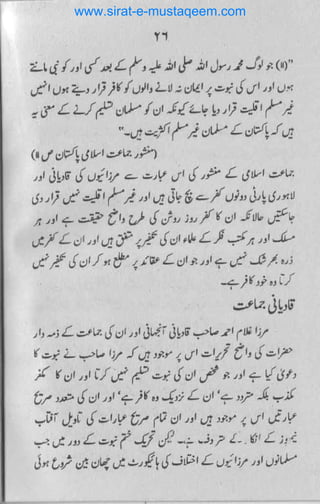 www.sirat-e-mustaqeem.com
۲۶
"(۱۱) جو لوگ محمد رسول اللہ صلی اللہ علیہ وسلم کے بعد کسی اور کو نبی مانتے
ہوں اور اس کی نبوت پر ایمان نہ لانے والوں کو کافر قرار دیتے ہوں انہیں
غیر مسلم اقلیت قرار دیا جائے کیونکہ ان کو مسلمان تسلیم کرنے کے معنی یہ
ہیں کہ پاکستان کے مسلمان غیر مسلم اکثریت ہیں۔"
(منشور جماعت اسلامی پاکستان ص ۱۱)
جماعت اسلامی کے منشور کی اس عبارت سے مرزائیوں کی قادیانی اور
لاہوری پارٹی دونوں کفر سے بچ جاتی ہیں اور غیر مسلم اقلیت نہیں قرار دی
جاسکتیں حالانکہ ان کا کفر روز روشن کی طرح واضح حقیقت ہے اور ہر
مسلک اور ہر مکتب فکر کے علماء ان کی تکفیر پر متفق ہیں اور ان کے کفر میں
ذرہ بھر شک نہیں ہے اور جو ان کے عقائد پر مطلع ہو کر ان کی تکفیر نہیں
کرتا وہ خود کافر ہے۔
قادیانی جماعت
مرزا غلام احمد صاحب قادیانی آنجہانی اور ان کی جماعت کے ذمہ دار
حضرات کی واضح تحریرات اس پر موجود ہیں کہ مرزا صاحب نے نبوت کا
دعویٰ کیا ہے اور جو شخص ان کی نبوت تسلیم نہیں کرتا اور ان کا مکفر
مکذب بلکہ متردد ہے' ان کے نزدیک وہ کافر ہے' اور ان کی متعدد صریح
عبارتیں اس پر موجود ہیں اور ان تمام صریح عبارات کی تاویل آفتاب
نیمروز کے انکار کے مترادف ہے۔ لیکن تحریک ختم نبوت کے دور میں جب
مسلمانوں اور مرزائیوں کے اختلاف کی ہائیکورٹ میں چھان بین شروع ہوئی